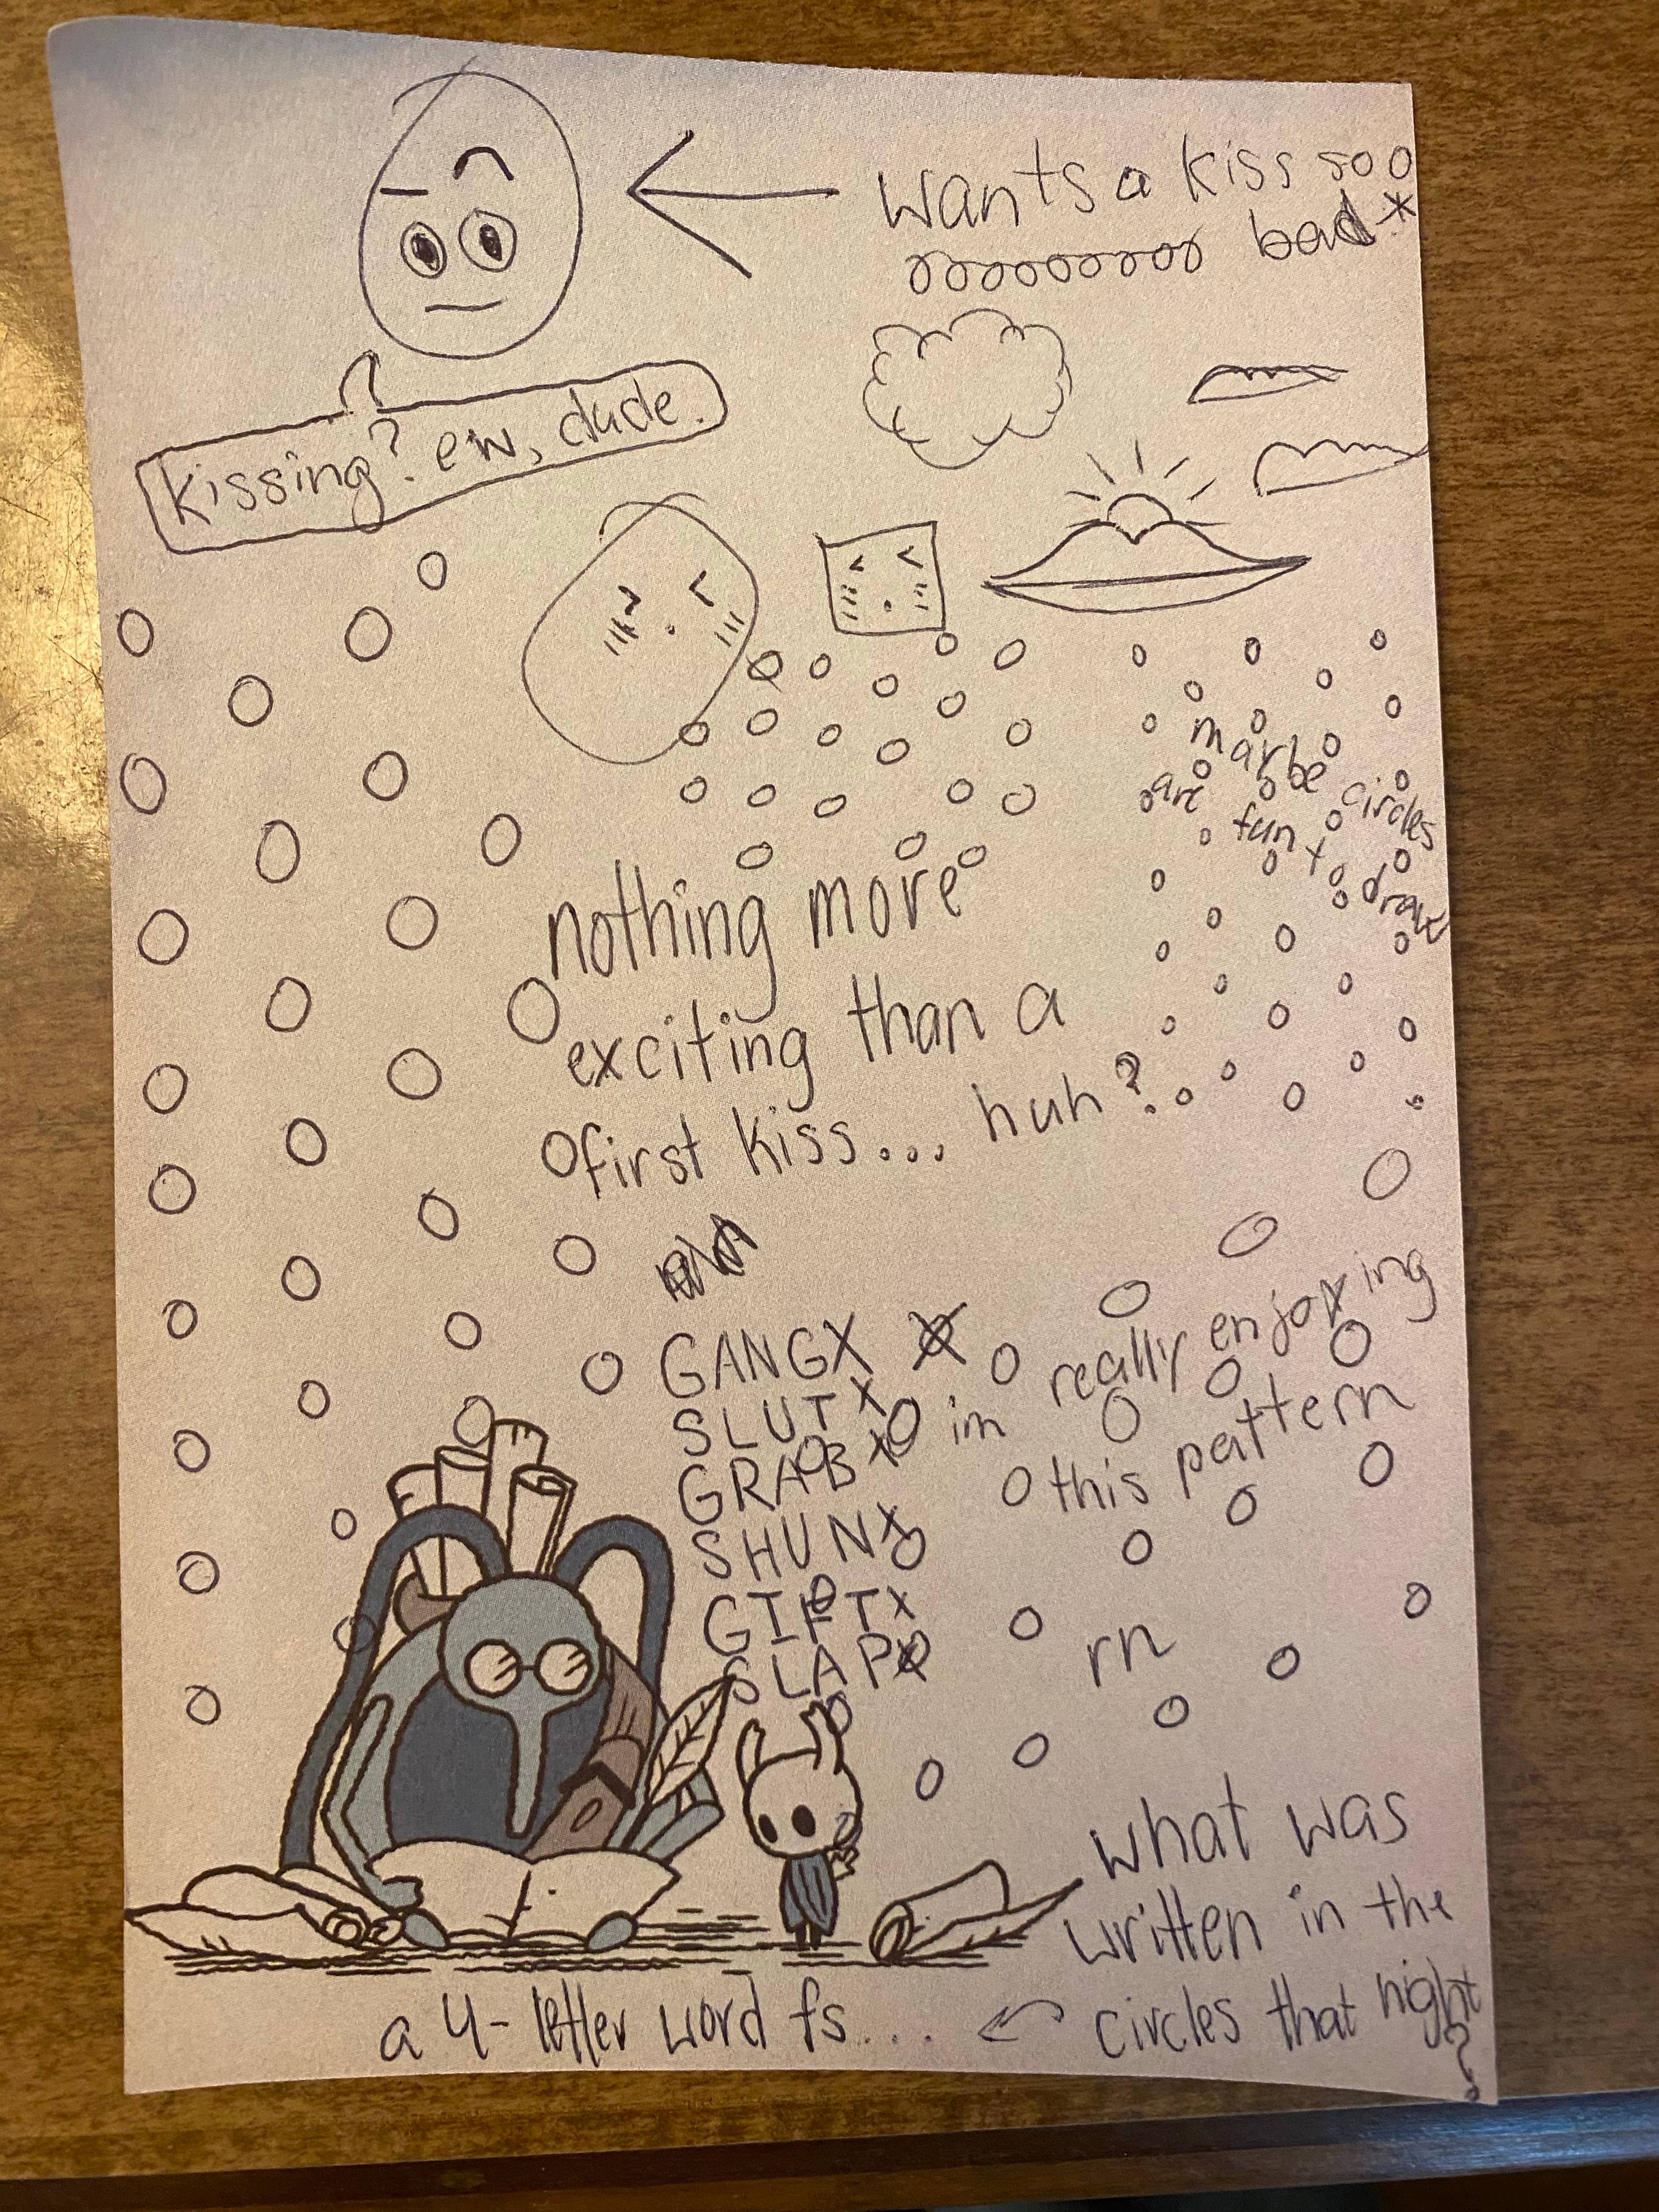 wants a kiss soo
ooooooooo bad*
kissing? ew, dude.
maybe circles
are fun to draw
nothing more
exciting than a
first kiss... huh?
GANGX
SLUTX
GRABX
SHUNX
GIFTX
SLAPX
im really enjoying
this pattern
rn
what was
written in the
circles that night
?
a 4-letter word fs....